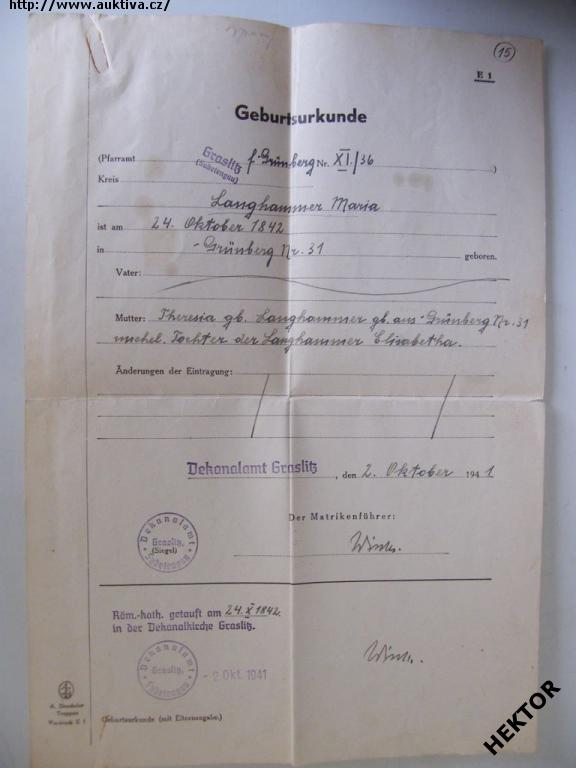 http://www.auktiva.cz/
15
E 1
Geburtsurkunde
(Pfarramt Graslitz (Sudetengau) f. Grünberg Nr. XI./36 )
Kreis
Langhammer Maria
ist am 24. Oktober 1842
in Grünberg Nr. 31 geboren.
Vater:
Mutter: Theresia gb. Langhammer gb. aus Grünberg Nr. 31
unehel. Tochter der Langhammer Elisabetha.
Änderungen der Eintragung:
Dekanalamt Graslitz, den 2. Oktober 1941
Der Matrikenführer:
Dekanalamt
Graslitz.
(Siegel)
Sudetengau
Röm.-kath. getauft am 24. X 1842.
in der Dekanalkirche Graslitz.
Dekanalamt
Graslitz.
Sudetengau
- 2. Okt. 1941
Troppau
Vordruck E 1
Geburtsurkunde (mit Elternangabe.)
HEKTOR